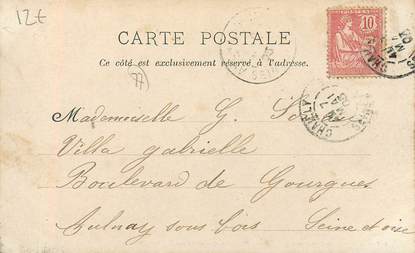 12€
CARTE POSTALE
Ce côté est exclusivement réservé à l'adresse.
10
Mademoiselle G.
Villa gabrielle
Boulevard de Gourgues
Aulnay sous bois Seine et oise
CHAMBLY